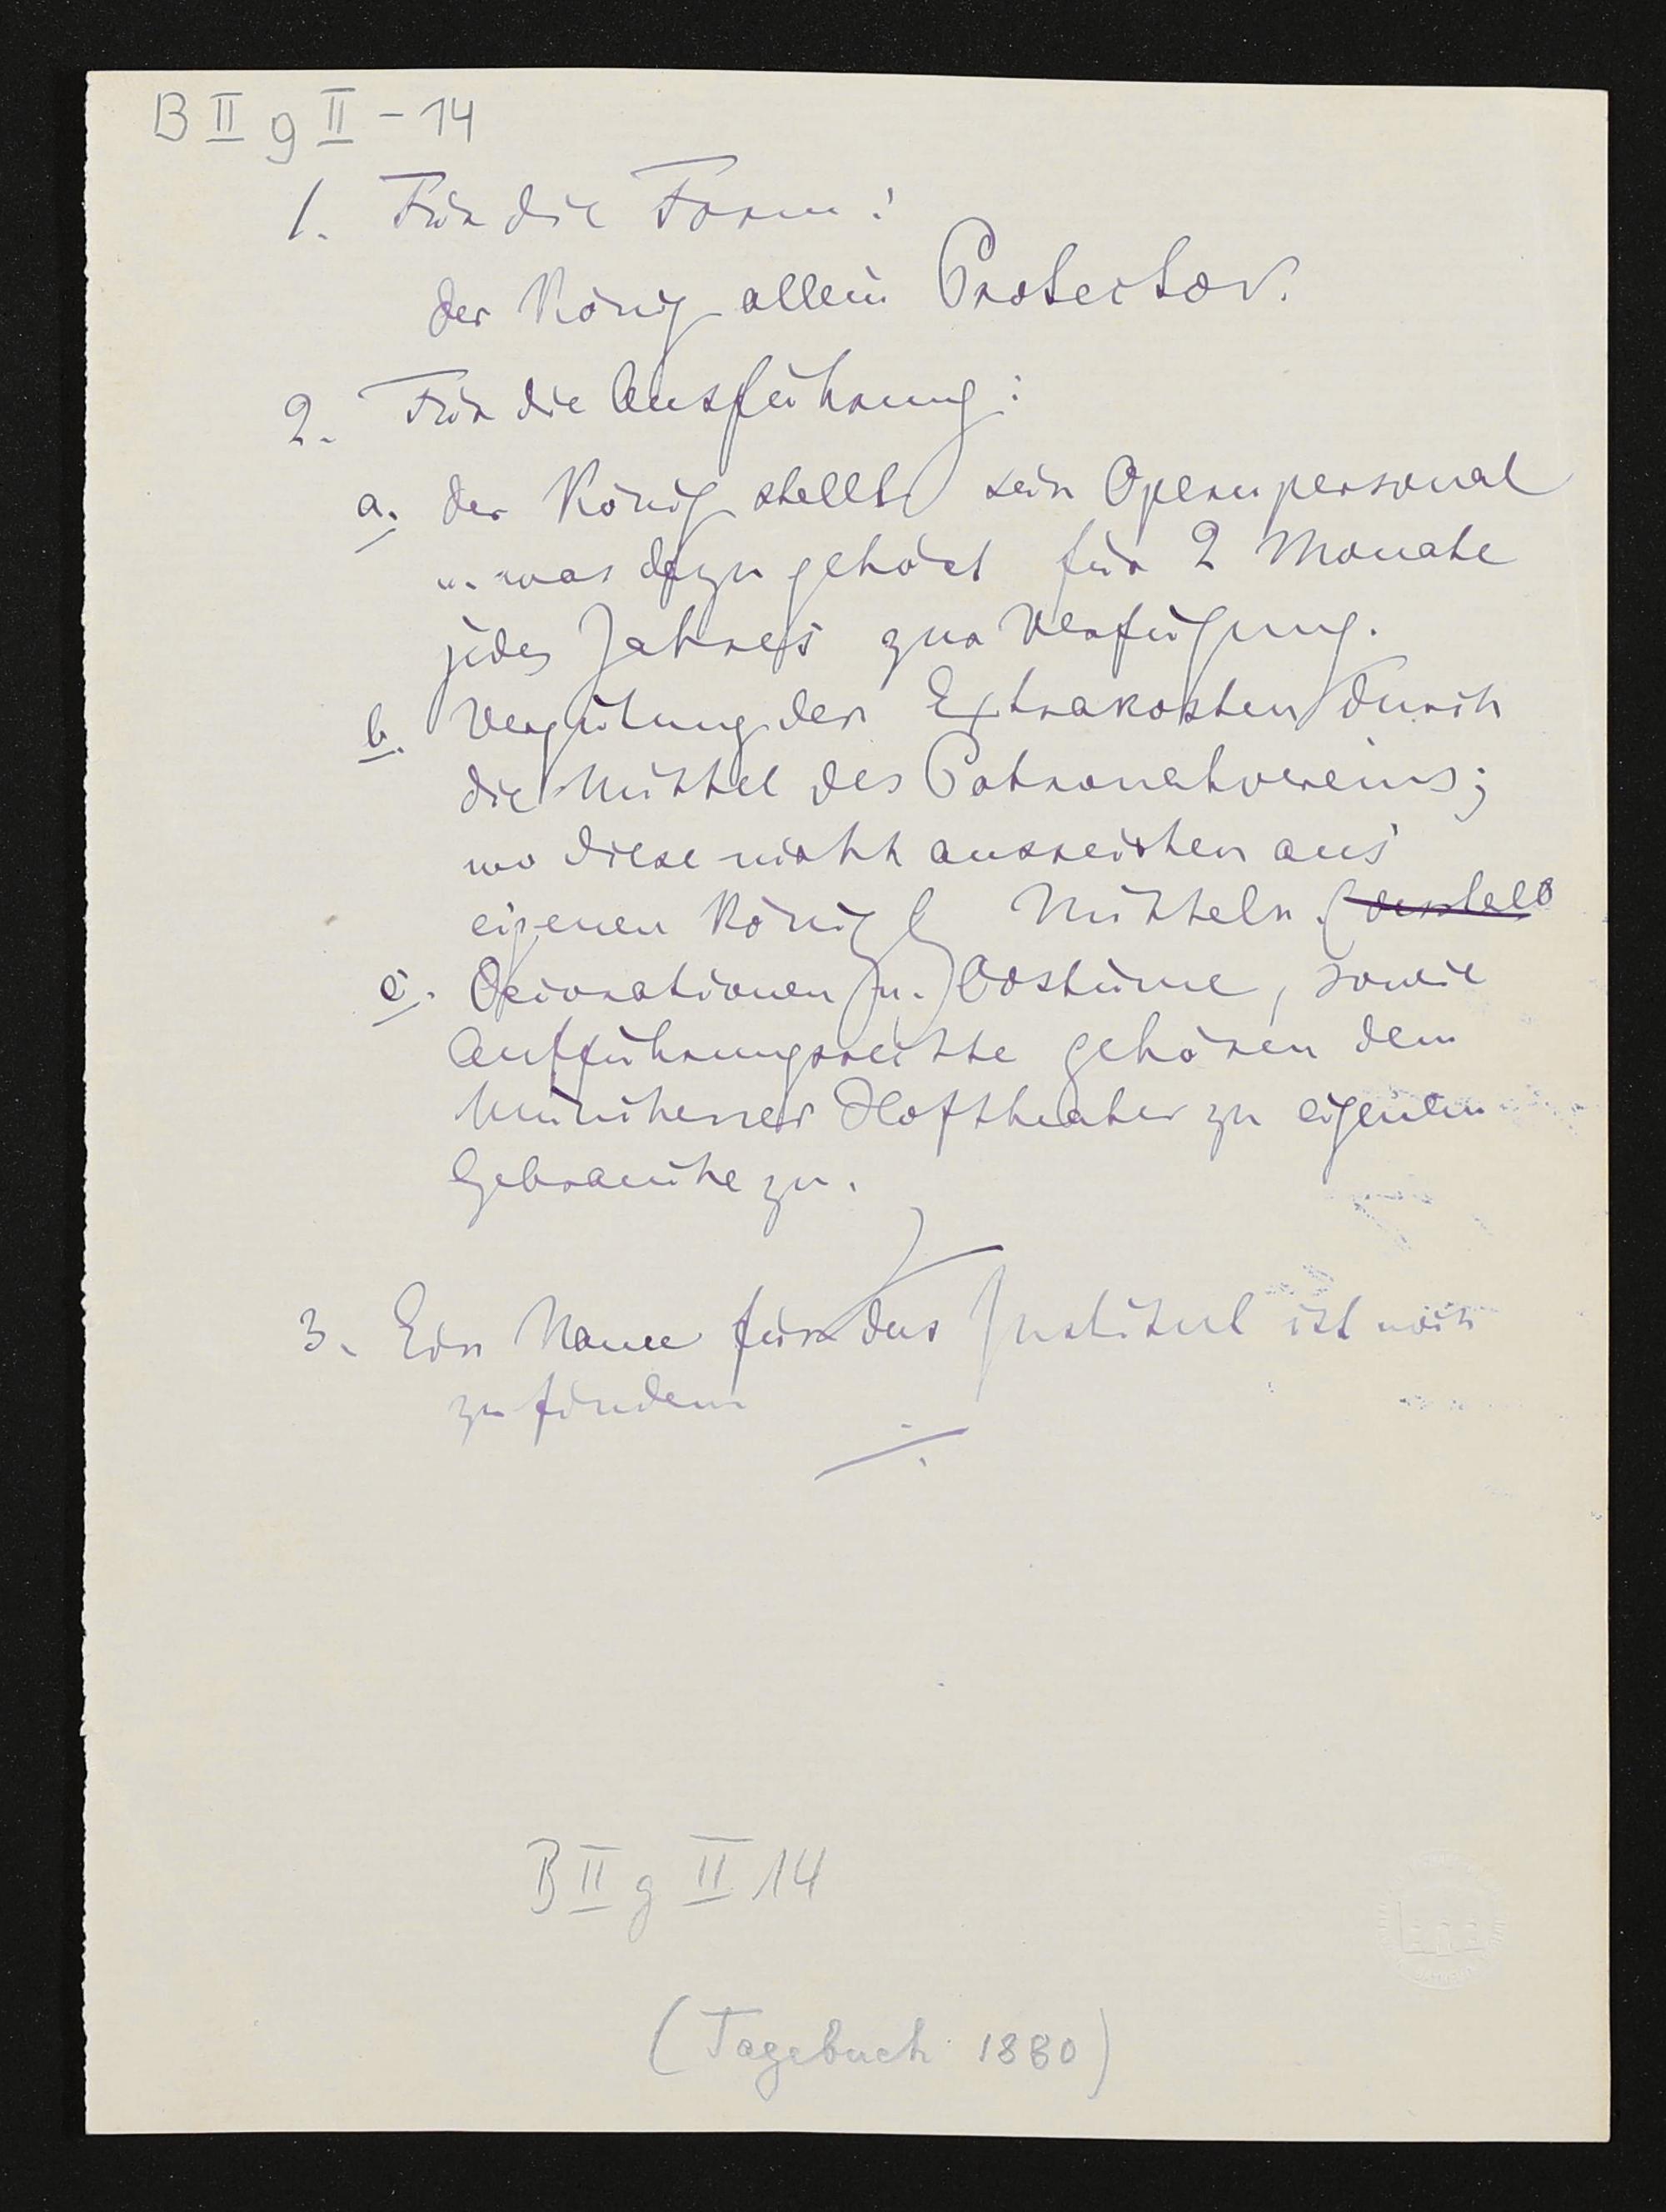 B II g II - 14
1. Für die Form:
der König allein Protector.
2. Für die Ausführung:
a. der König stellt sein Opernpersonal
u. was dazu gehört für 2 Monate
jedes Jahres zur Verfügung.
b. Vergütung der Extrakosten durch
die Mittel des Patronatvereins;
wo diese nicht ausreichen aus
eigenen Königl Mitteln.
c. Decorationen u. Costüme, sowie
Aufführungsrechte gehören dem
Münchener Hoftheater zu eigenem
Gebrauche zu.
3. Ein Name für das Institut ist noch
zu finden
B II g II 14
(Tagebuch 1880)